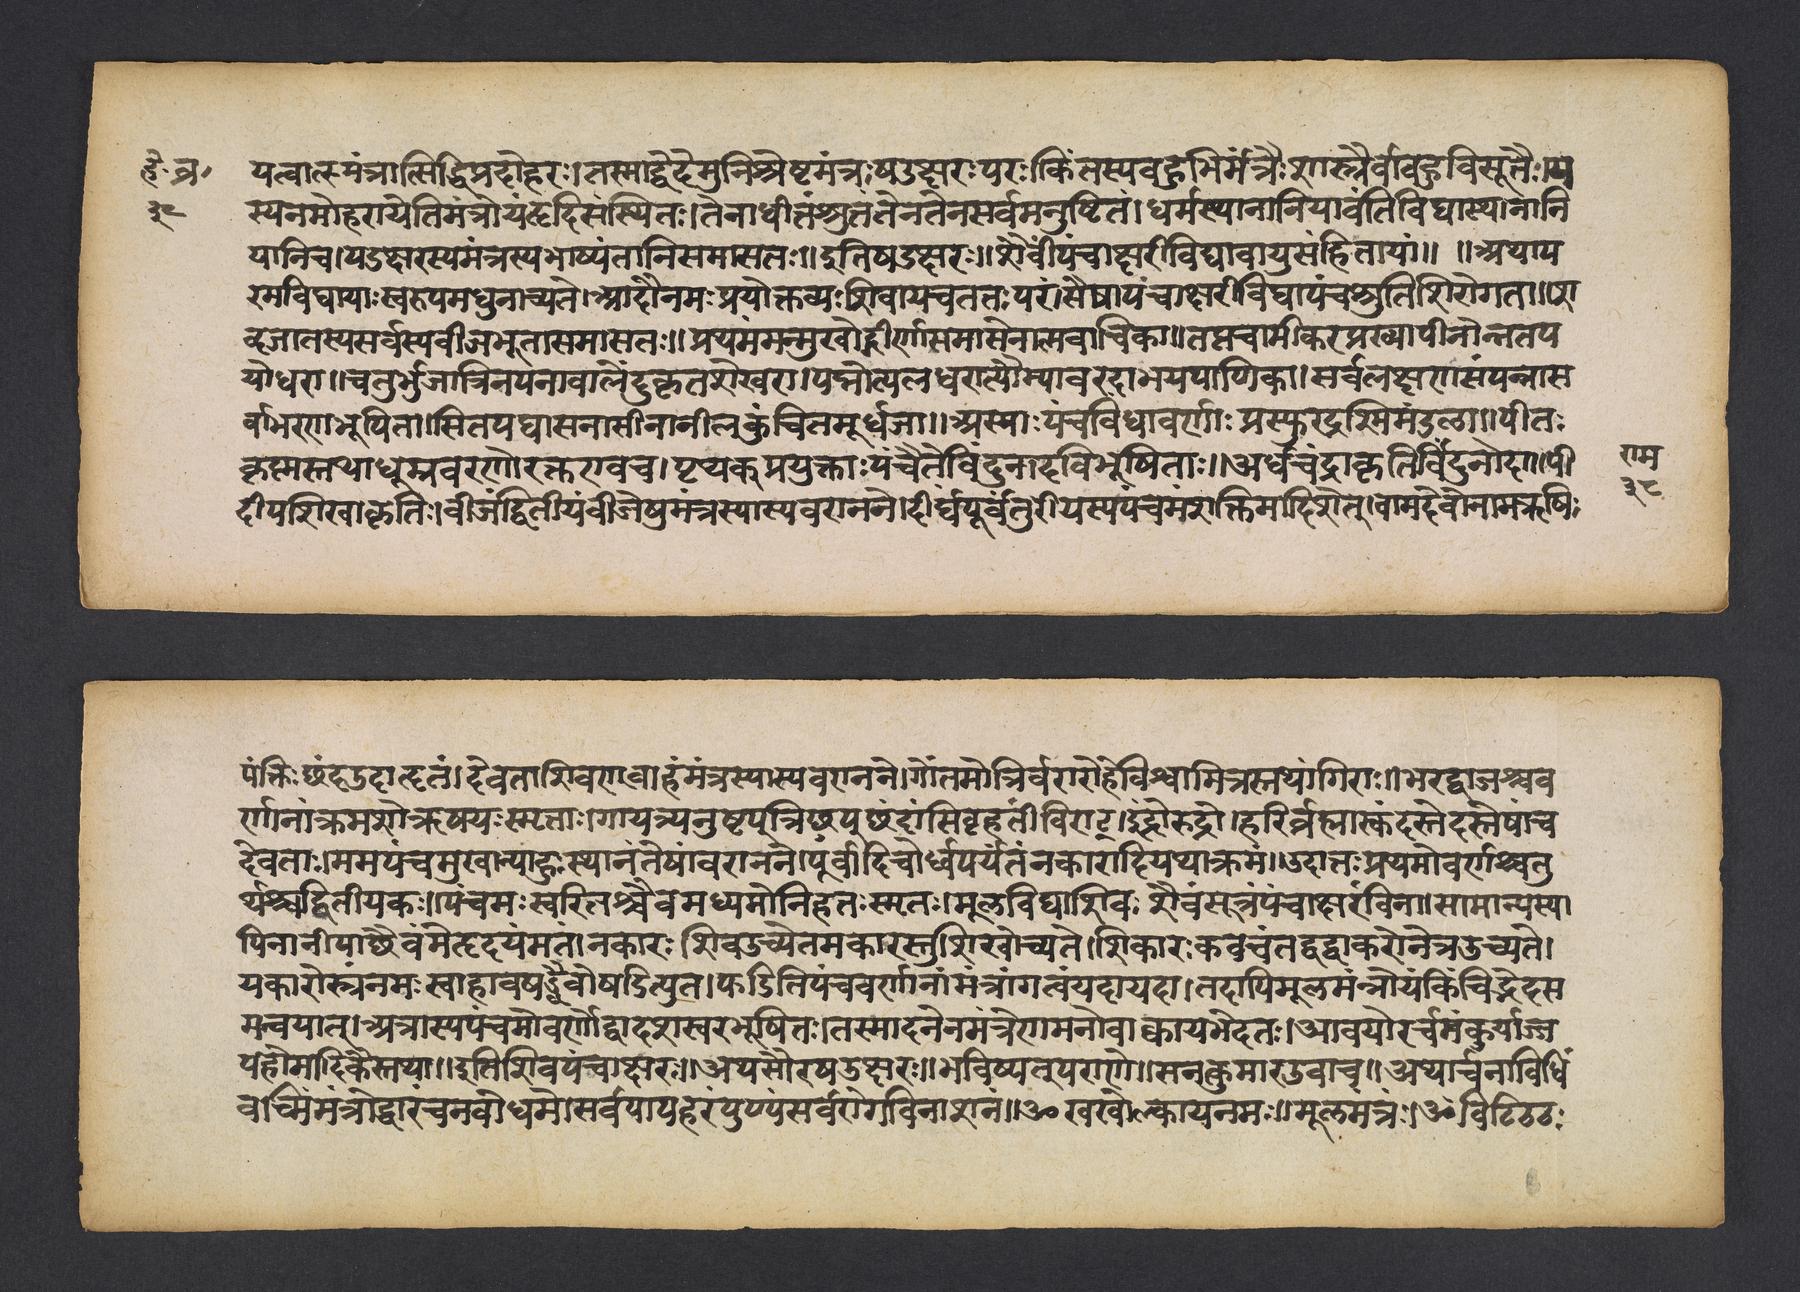 हे. व्र.
३९
यत्वात्समंत्रात्सिद्धिप्रदोहरः।तस्माद्वेदेमुनिश्रेष्टमंत्रः षडक्षरः परः किं तस्यवहुभिर्मंत्रैः शास्त्रैर्वावहुविसृतैः।य
स्यनमोहरायेतिमंत्रोयंहृदिसंस्थितः।तेनाधीतंश्रुततेनतेनसर्वमनुष्टितं।धर्मस्थानानियावंतिविद्यास्थानानि
यानिच।षडक्षरस्यमंत्रस्यभाष्यंतानिसमासतः॥इतिषडक्षरः॥शैवीपंचाक्षरीविद्यावायुसंहितायां॥ ॥अथाप
रमविद्यायाः स्वरुपमधुनोच्यते।आदौनमः प्रयोक्तव्यः शिवायचततः परं।सैषापंचाक्षरीविद्यापंचश्रुतिशिरोगता॥श
व्दजातस्यसर्वस्यवीजभूतासमासतः॥प्रथमंमन्मुखोद्गीर्णासमासेनात्मवाचिका॥तप्तचामीकरप्रख्यापीनोन्नतप
योधरा॥चतुर्भुजात्रिनयनावालेंदुकृतशेखरा।पद्मोत्पलधरासौम्यावरदाभयपाणिका।सर्वलक्षणसंपन्नास
र्वाभरणभूषिता।सितपद्मासनासीनानीलकुंचितमूर्धजा॥अस्याः पंचविधावर्णाः प्रस्फुरद्रश्मिमंडला॥पीतः
कृष्णस्तथाधूम्रवरणोरक्तएवच।पृथक्प्रयुक्ताः पंचैतेविंदुनादविभूषिताः॥अर्धचंद्राकृतिर्विंदुनादो॥पी
राम
३९
दीपशिखाकृतिः।वीजंद्वितीयंवीजेषुमंत्रस्यास्यवरानने।दीर्घपूर्वंतुरीयस्यपंचमंशक्तिमादिशेत्।वामदेवोनामऋषिः
पंक्तिः छंदउदाहृतं।देवताशिवएवाहंमंत्रस्यास्यवरानने।गौतमोत्रिर्वरारोहेविश्वामित्रस्तथांगिराः॥भरद्वाजश्चव
र्णानांक्रमशोऋषयः स्मृताः।गायत्र्यनुष्टप्त्रिष्टुप्छंदांसिवृहतीविराट्।इंद्रोरुद्रो।हरिर्व्रह्मास्कंदस्तेदस्तेषांच
देवताः।ममपंचमुखान्याहुः स्थानंतेषांवरानने।पूर्वादिचोर्ध्वपर्यंतंनकारादियथाक्रमं।उदात्तः प्रथमोवर्णश्चतु
र्थश्चद्वितीयकः॥पंचमः स्वरितश्चैवमध्यमोनिहतः स्मृतः।मूलविद्याशिवः शैवंसूत्रंपंचाक्षरंविना॥सामान्यस्या
पिनानीयाछैवंमेहृदयंमतं।नकारः शिवउच्येतमकारस्तुशिखोच्यते।शिकारः कवचंतद्वद्वाकरोनेत्रउच्यते।
यकारोस्त्रंनमः स्वाहावषड्हुंवौषडित्युत।फडितिपंचवर्णानांमंत्रांगत्वंयदायदा।तदापिमूलमंत्रोयंकिंचिद्भेदस
मन्वयात्।अत्रास्यपंचमोवर्णोद्वादशस्वरभूषितः।तस्मादनेनमंत्रेणमनोवाक्कायभेदतः।आवयोरर्चनंकुर्याज्ज
पहोमादिकंस्तथा॥इतिशिवपंचाक्षरः॥अथसौरषडक्षरः॥भविष्यत्पुराणे॥सनत्कुमारउवाच॥अथार्चनाविधिं
वच्मिमंत्रोद्धारंचनवोधमे।सर्वपापहरंपुण्यंसर्वरोगविनाशनं॥ॐ खखोल्कायनमः॥मूलमंत्रः।ॐ विटिठठः